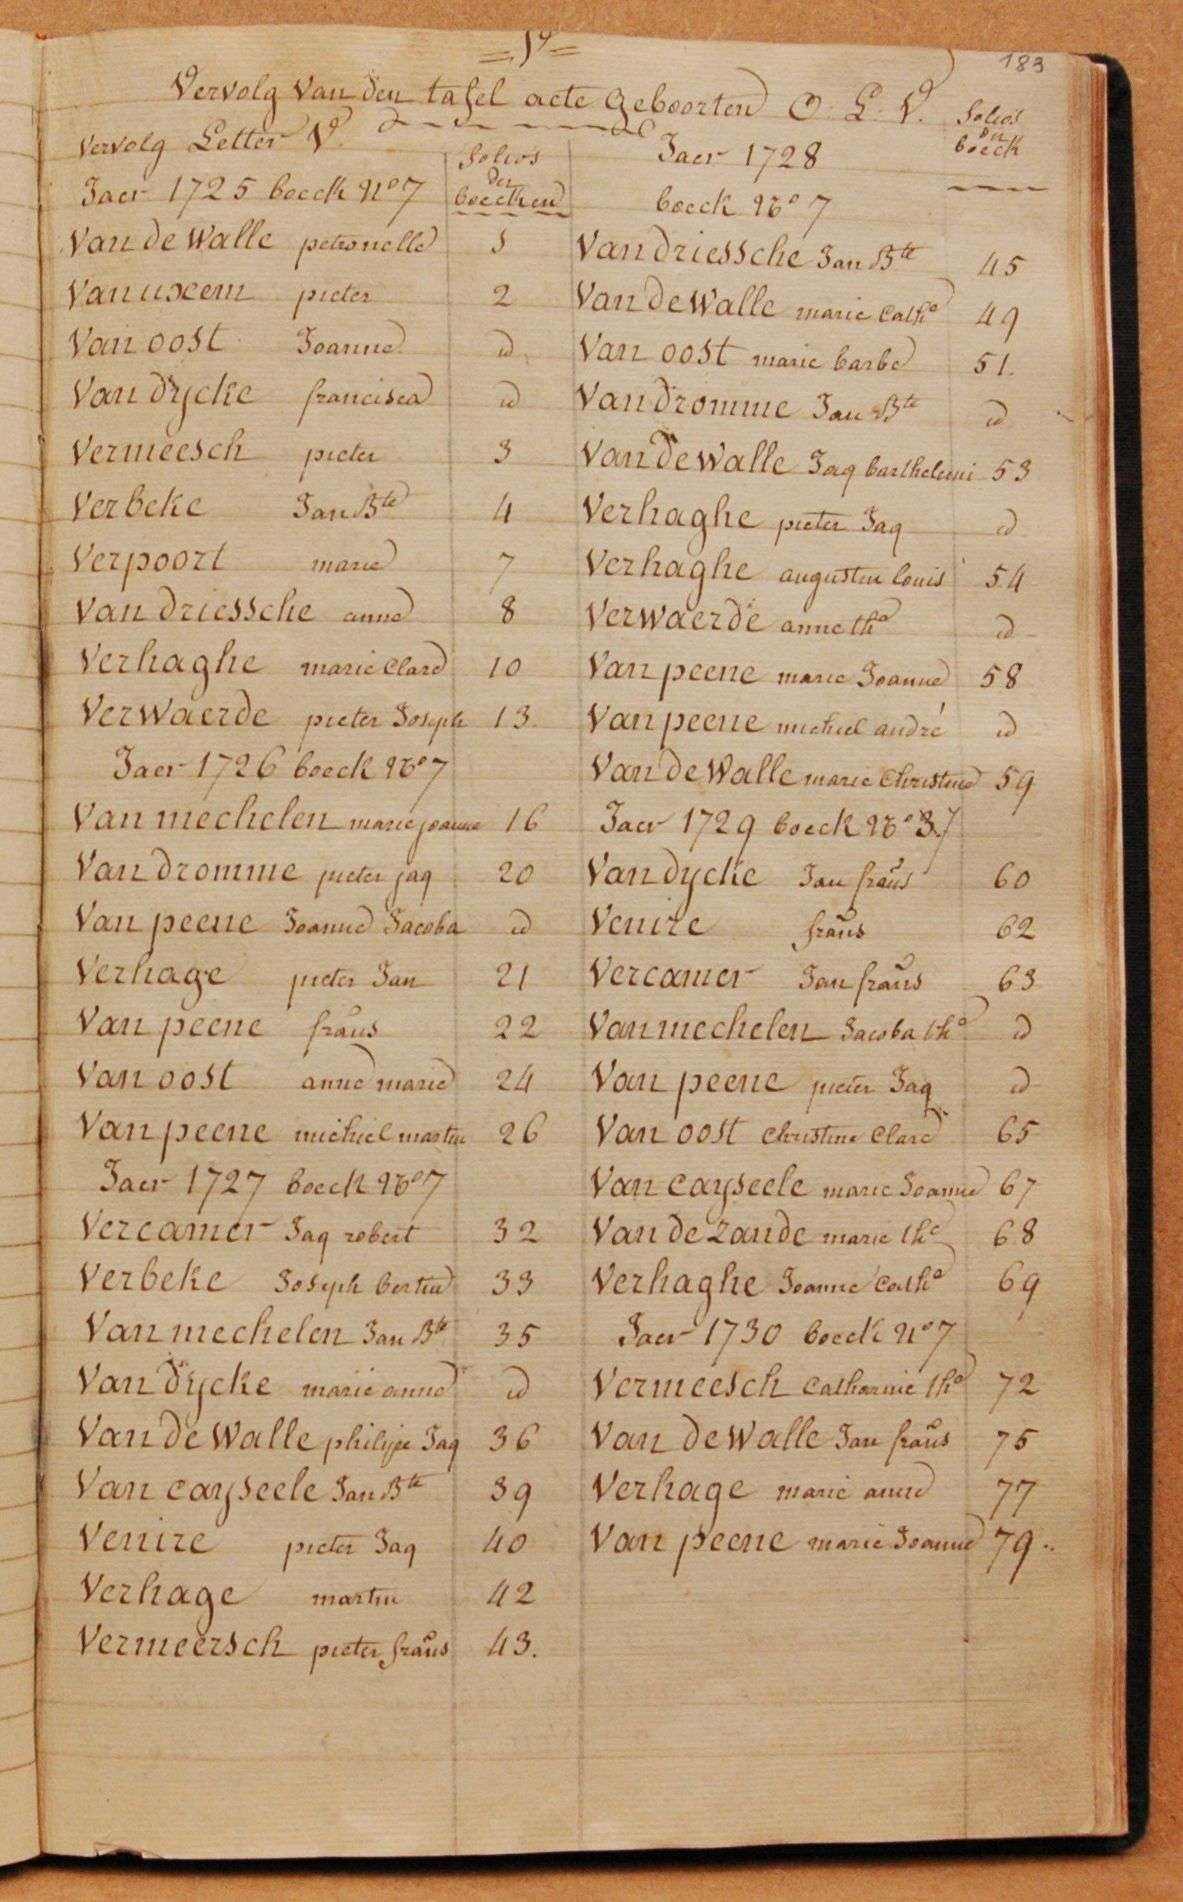 183
Vervolg Van den tafel acte geboorten O. L. V.
Vervolg Letter V.
folios der boecken
Jaer 1725 boeck No 7
Van de Walle petronelle 1
Van uxeem pieter 2
Van oost Joanne id
Van dycke francisca id
Vermeesch pieter 3
Verbeke Jan Bte 4
Verpoort marie 7
Van driessche anne 8
Verhaghe marie Clare 10
Verwaerde pieter Joseph 13
Jaer 1726 boeck No 7
Van mechelen marie joanne 16
Van dromme pieter jaq 20
Van peene Joanne Jacoba id
Verhage pieter Jan 21
Van peene fraus 22
Van oost anne marie 24
Van peene michiel martin 26
Jaer 1727 boeck No 7
Vercamer Jaq robert 32
Verbeke Joseph bertin 33
Van mechelen Jan Bte 35
Van dycke marie anne id
Van de Walle philipe Jaq 36
Van cayseele Jan Bte 39
Venire pieter Jaq 40
Verhage martin 42
Vermeersch pieter fraus 43.
folios der boeck
Jaer 1728
boeck No 7
Van driessche Jan Bte 45
Van de Walle marie Catha 49
Van oost marie barbe 51.
Van dromme Jan Bte id
Van de Walle Jaq barthelemi 53
Verhaghe pieter Jaq id
Verhaghe augustin louis 54
Verwaerde anne tha id
Van peene marie Joanne 58
Van peene michiel andré id
Van de Walle marie Christine 59
Jaer 1729 boeck No 7
Van dycke Jan fraus 60
Venire fraus 62
Vercamer Jan fraus 63
Van mechelen Jacoba tha id
Van peene pieter Jaq id
Van oost Christine Clare 65
Van cayseele marie Joanne 67
Van de zande marie the 68
Verhaghe Joanne Catha 69
Jaer 1730 boeck No 7
Vermeesch Catharine tha 72
Van de Walle Jan fraus 75
Verhage marie anne 77
Van peene marie Joanne 79..